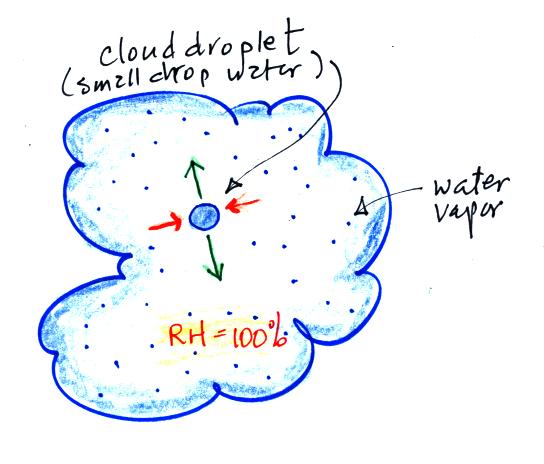 cloud droplet
(small drop water)
water
vapor
RH = 100%